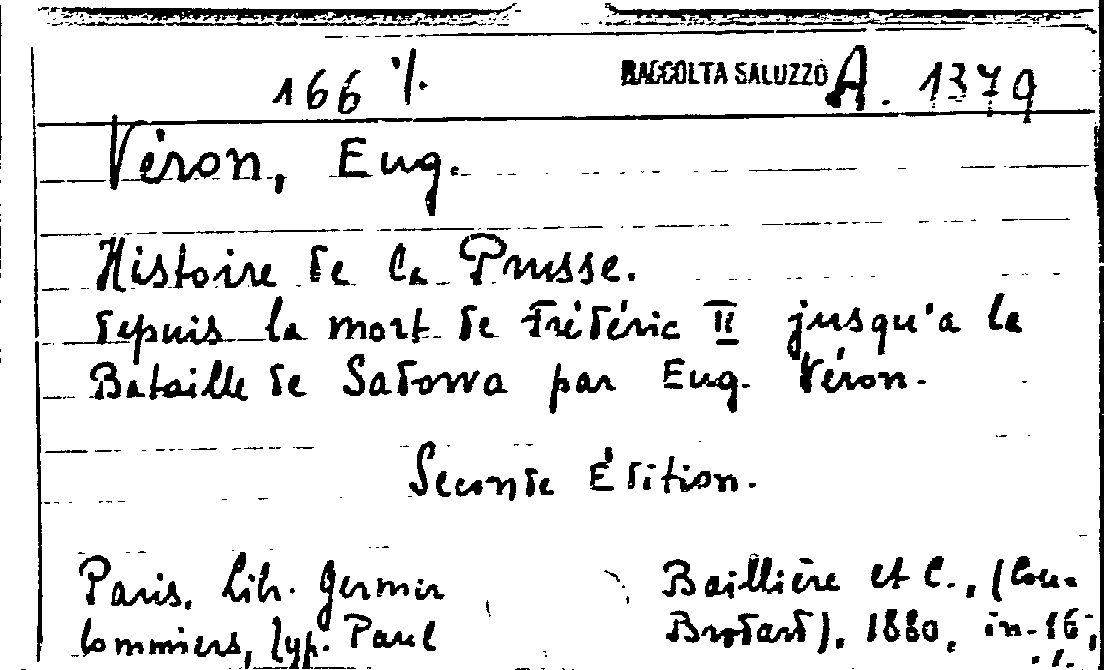 166 ·/.
RACCOLTA SALUZZO A. 1379
Véron, Eug.
Histoire de la Prusse.
depuis la mort de Frédéric II jusqu'a la
Bataille de Sadowa par Eug. Véron.
Seconde Édition.
Paris, Lib. Germer Baillière et C., (Cou-
lommiers, typ. Paul Brodard), 1880, in-16,
·/.